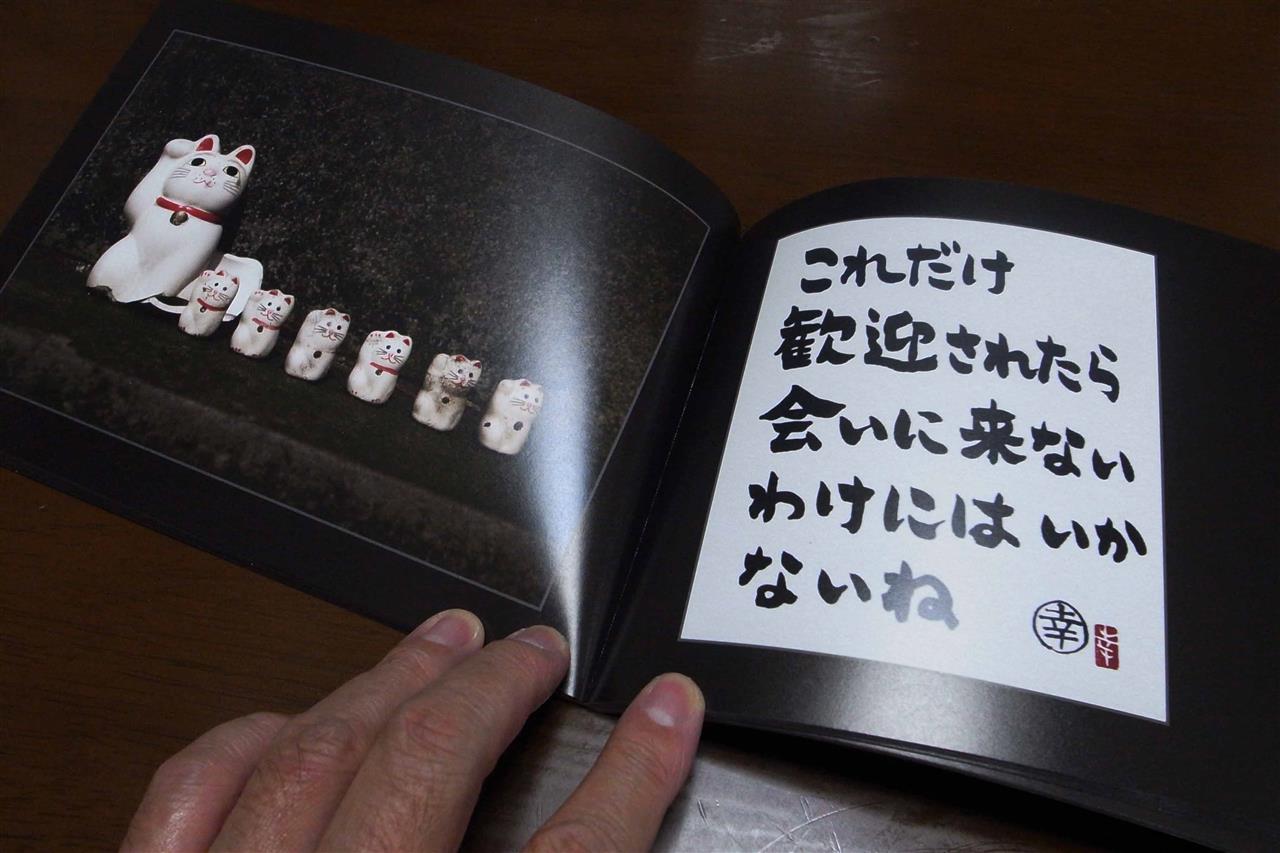 これだけ
歓迎されたら
会いに来ない
わけにはいか
ないね
幸